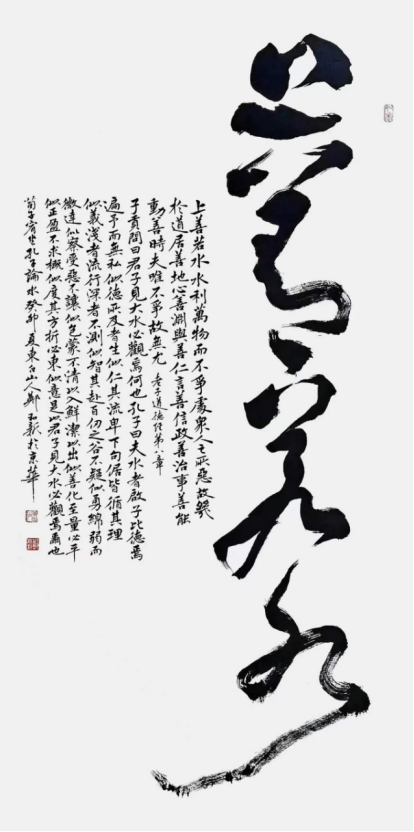 上善若水
上善若水水利萬物而不爭處衆人之所惡故幾
於道居善地心善淵與善仁言善信政善治事善能
動善時夫唯不爭故無尤 老子道德經第八章
子貢問曰君子見大水必觀焉何也孔子曰水者啟子比德焉
遍予而無私似德所及者生似仁其流卑下句倨皆循其理
似義淺者流行深者不測似智其赴百仞之谷不疑似勇綿弱而
微達似察受惡不讓似包蒙不清以入鮮潔以出似善化至量必平
似正盈不求概似度其万折必東似意是以君子見大水必觀焉爾也
荀子宥坐孔子論水癸卯夏東白山人鄭和新於京華